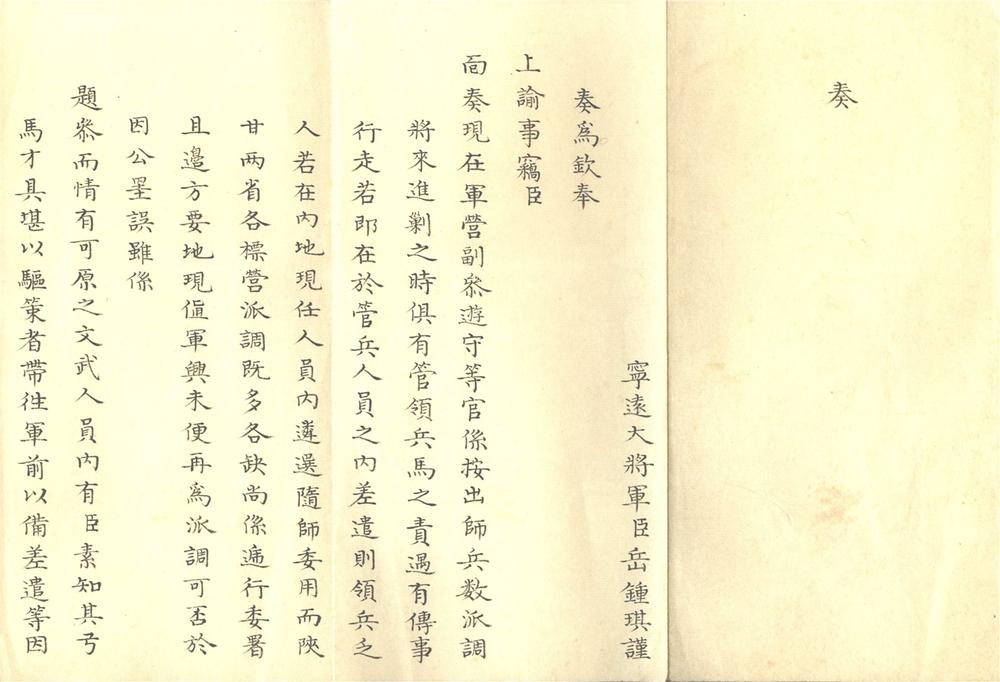 奏
寧遠大將軍臣岳鍾琪謹
奏為欽奉
上諭事竊臣
面奏現在軍營副叅遊守等官係按出師兵数派調
將來進剿之時俱有管領兵馬之責遇有傳事
行走若即在於管兵人員之內差遣則領兵乏
人若在內地現任人員內遴選隨師委用而陝
甘兩省各標營派調既多各缺尚係遞行委署
且邉方要地現值軍興未便再為派調可否於
因公罣誤雖係
題叅而情有可原之文武人員內有臣素知其弓
馬才具堪以驅策者帶徃軍前以備差遣等因